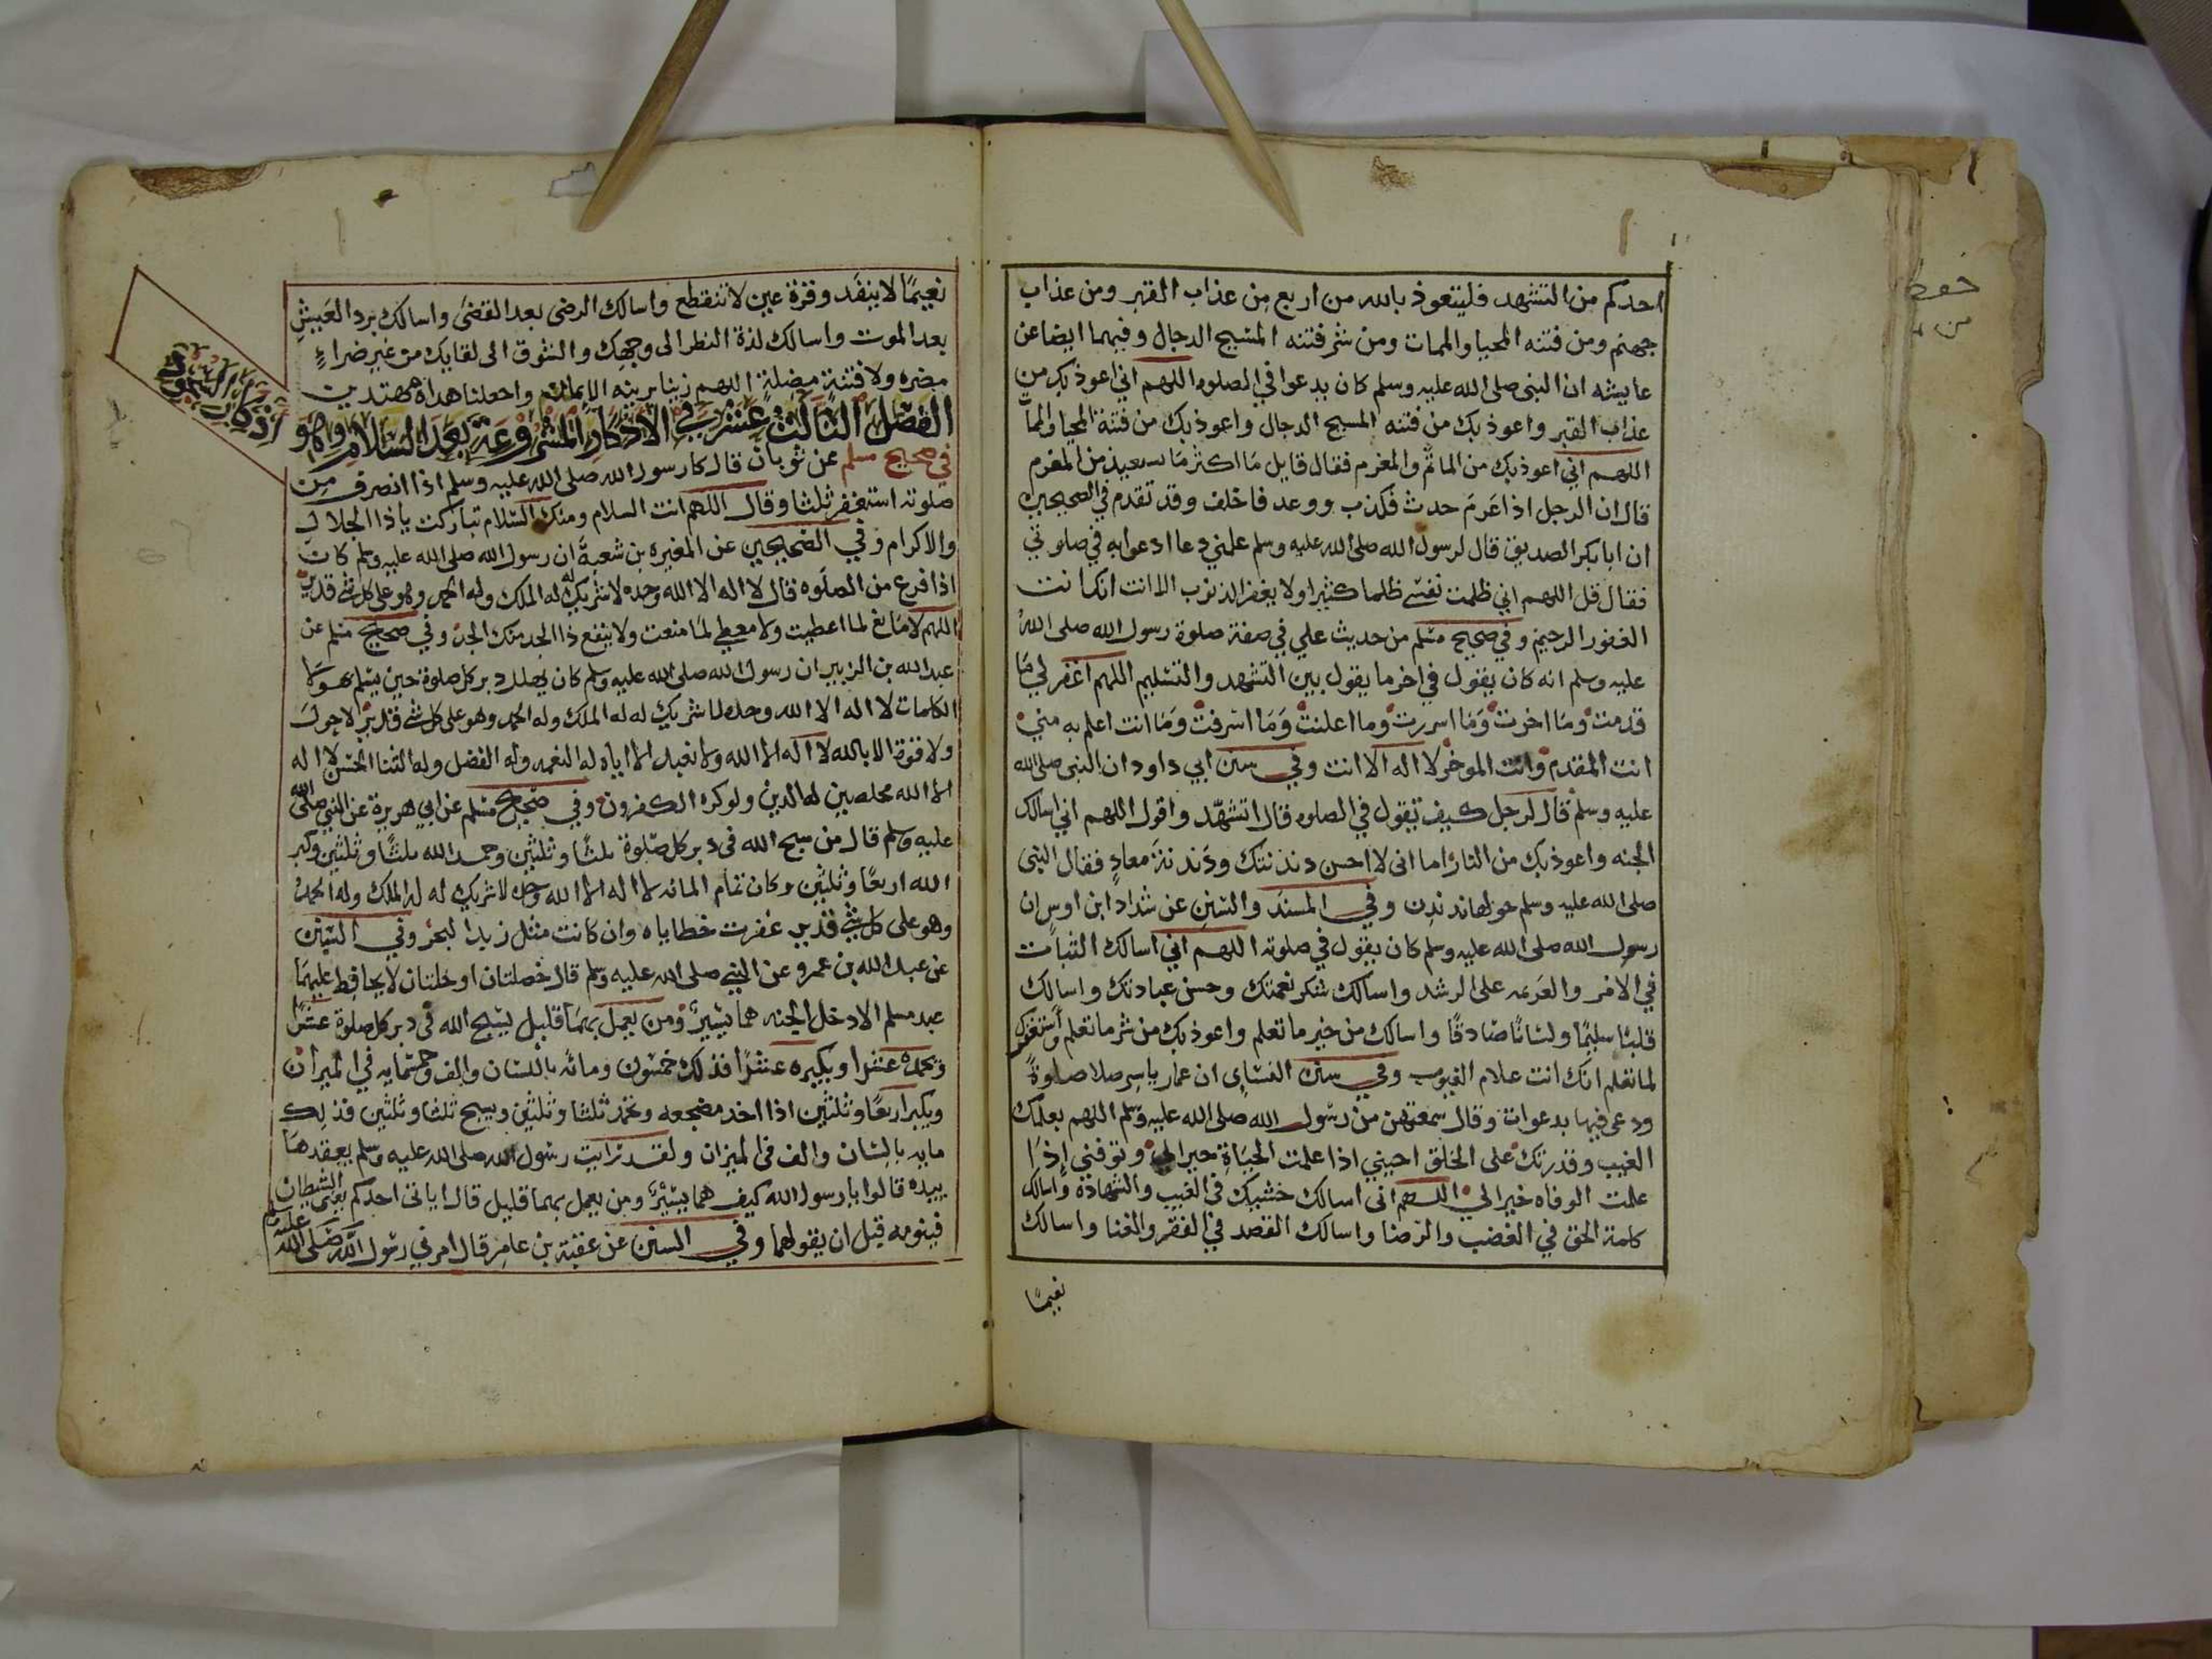 احدكم من التشهد فليتعوذ بالله من اربع من عذاب القبر ومن عذاب
جهنم ومن فتنه المحيا والممات ومن شر فتنه المسيح الدجال وفيهما ايضا عن
عايشه ان النبى صلى الله عليه وسلم كان يدعوا في الصلوه اللهم اني اعوذ بك من
عذاب القبر واعوذ بك من فتنه المسيح الدجال واعوذ بك من فتنة المحيا والممات
اللهم اني اعوذ بك من الماثم والمغرم فقال قايل ما اكثر ما تستعيذ من المغرم
قال ان الرجل اذا غرم حدث فكذب ووعد فاخلف وقد تقدم في الصحيحين
ان ابا بكر الصديق قال لرسول الله صلى الله عليه وسلم علمني دعا ادعوا به في صلوتي
فقال قل اللهم اني ظلمت نفسي ظلما كثيرا ولا يغفر الذنوب الا انت انك انت
الغفور الرحيم وفي صحيح مسلم من حديث علي في صفة صلوة رسول الله صلى الله
عليه وسلم انه كان يقول في اخر ما يقول بين التشهد والتسليم اللهم اغفر لي ما
قدمت وما اخرت وما اسررت وما اعلنت وما اسرفت وما انت اعلم به مني
انت المقدم وانت الموخر لا اله الا انت وفي سنن ابي داود ان النبى صلى الله
عليه وسلم قال لرجل كيف تقول في الصلوه قال اتشهد واقول اللهم اني اسالك
الجنه واعوذ بك من النار اما انى لا احسن دندنتك ودندنة معاذ فقال النبى
صلى الله عليه وسلم حولها ندندن وفي المسند والسنن عن شداد ابن اوس ان
رسول الله صلى الله عليه وسلم كان يقول في صلوته اللهم اني اسالك الثبات
في الامر والعزيمه على الرشد واسالك شكر نعمتك وحسن عبادتك واسالك
قلبا سليما ولسانا صادقا واسالك من خير ما تعلم واعوذ بك من شر ما تعلم واستغفرك
لما تعلم انك انت علام الغيوب وفي سنن النساى ان عمار ياسر صلا صلوة
ودعى فيها بدعوات وقال سمعتهن من رسول الله صلى الله عليه وسلم اللهم بعلمك
الغيب وقدرتك على الخلق احيني اذا علمت الحياة خيرا لي وتوفني اذا
علمت الوفاه خيرا لي اللهم انى اسالك خشيتك في الغيب والشهادة واسالك
كلمة الحق في الغضب والرضا واسالك القصد في الفقر والغنا واسالك
نعيما
نعيما لا ينفد وقرة عين لا تنقطع واسالك الرضى بعد القضى واسالك برد العيش
بعد الموت واسالك لذة النظر الى وجهك والشوق الى لقايك من غير ضراء
مضره ولا فتنة مضلة اللهم زينا بزينه الايمان واجعلنا هداه مهتدين
الفصل الثالث عشر في الاذكار المشروعة بعد السلام وهو
في صحيح مسلم عن ثوبان قال كان رسول الله صلى الله عليه وسلم اذا انصرف من
صلوته استغفر ثلثا وقال اللهم انت السلام ومنك السلام تباركت يا ذا الجلال
والاكرام وفي الصحيحين عن المغيره بن شعبة ان رسول الله صلى الله عليه وسلم كان
اذا فرغ من الصلوه قال لا اله الا الله وحده لا شريك له له الملك وله الحمد وهو على كل شي قدير
اللهم لا مانع لما اعطيت ولا معطي لما منعت ولا ينفع ذا الجد منك الجد وفي صحيح مسلم عن
عبد الله بن الزبير ان رسول الله صلى الله عليه وسلم كان يهلل دبر كل صلوة حين يسلم بهولا
الكلمات لا اله الا الله وحده لا شريك له له الملك وله الحمد وهو على كل شي قدير لا حول
ولا قوة الا بالله لا اله الا الله ولا نعبد الا اياه له النعمه وله الفضل وله الثنا الحسن لا اله
الا الله مخلصين له الدين ولو كره الكفرون وفي صحيح مسلم عن ابي هريرة عن النبي صلى الله
عليه وسلم قال من سبح الله فى دبر كل صلوة ثلثا وثلثين وحمد الله ثلثا وثلثين وكبر
الله اربعا وثلثين وكان تمام المائه لا اله الا الله وحده لا شريك له له الملك وله الحمد
وهو على كل شي قدير غفرت خطاياه وان كانت مثل زبد البحر وفي السنن
عن عبد الله بن عمرو عن النبي صلى الله عليه وسلم قال خصلتان او خلتان لا يحافظ عليهما
عبد مسلم الا دخل الجنه هما يسير ومن يعمل بهما قليل يسبح الله فى دبر كل صلوة عشرا
وبحمده عشرا ويكبره عشرا فذلك خمسون ومائه باللسان والف وخمسمايه في الميزان
ويكبر اربعا وثلثين اذا اخذ مضجعه ويحمد ثلثا وثلثين ويسبح ثلثا وثلثين فذلك
مايه باللسان والف فى الميزان ولقد رايت رسول الله صلى الله عليه وسلم يعقدها
بيده قالوا يا رسول الله كيف هما يسير ومن يعمل بهما قليل قال ياتى احدكم يعنى الشيطان
فينومه قبل ان يقولهما وفي السنن عن عقبة بن عامر قال امرني رسول الله صلى الله عليه وسلم